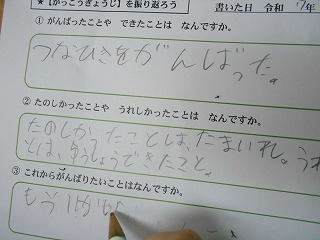 ★【がっこうぎょうじ】を振り返ろう 書いた日 令和 7年
① がんばったことや できたことは なんですか。
つなひきをがんばった。
② たのしかったことや うれしかったことは なんですか。
たのしかったことは、たまいれ。うれ
とは、ゆうしょうできたこと。
③ これからがんばりたいことはなんですか。
もう